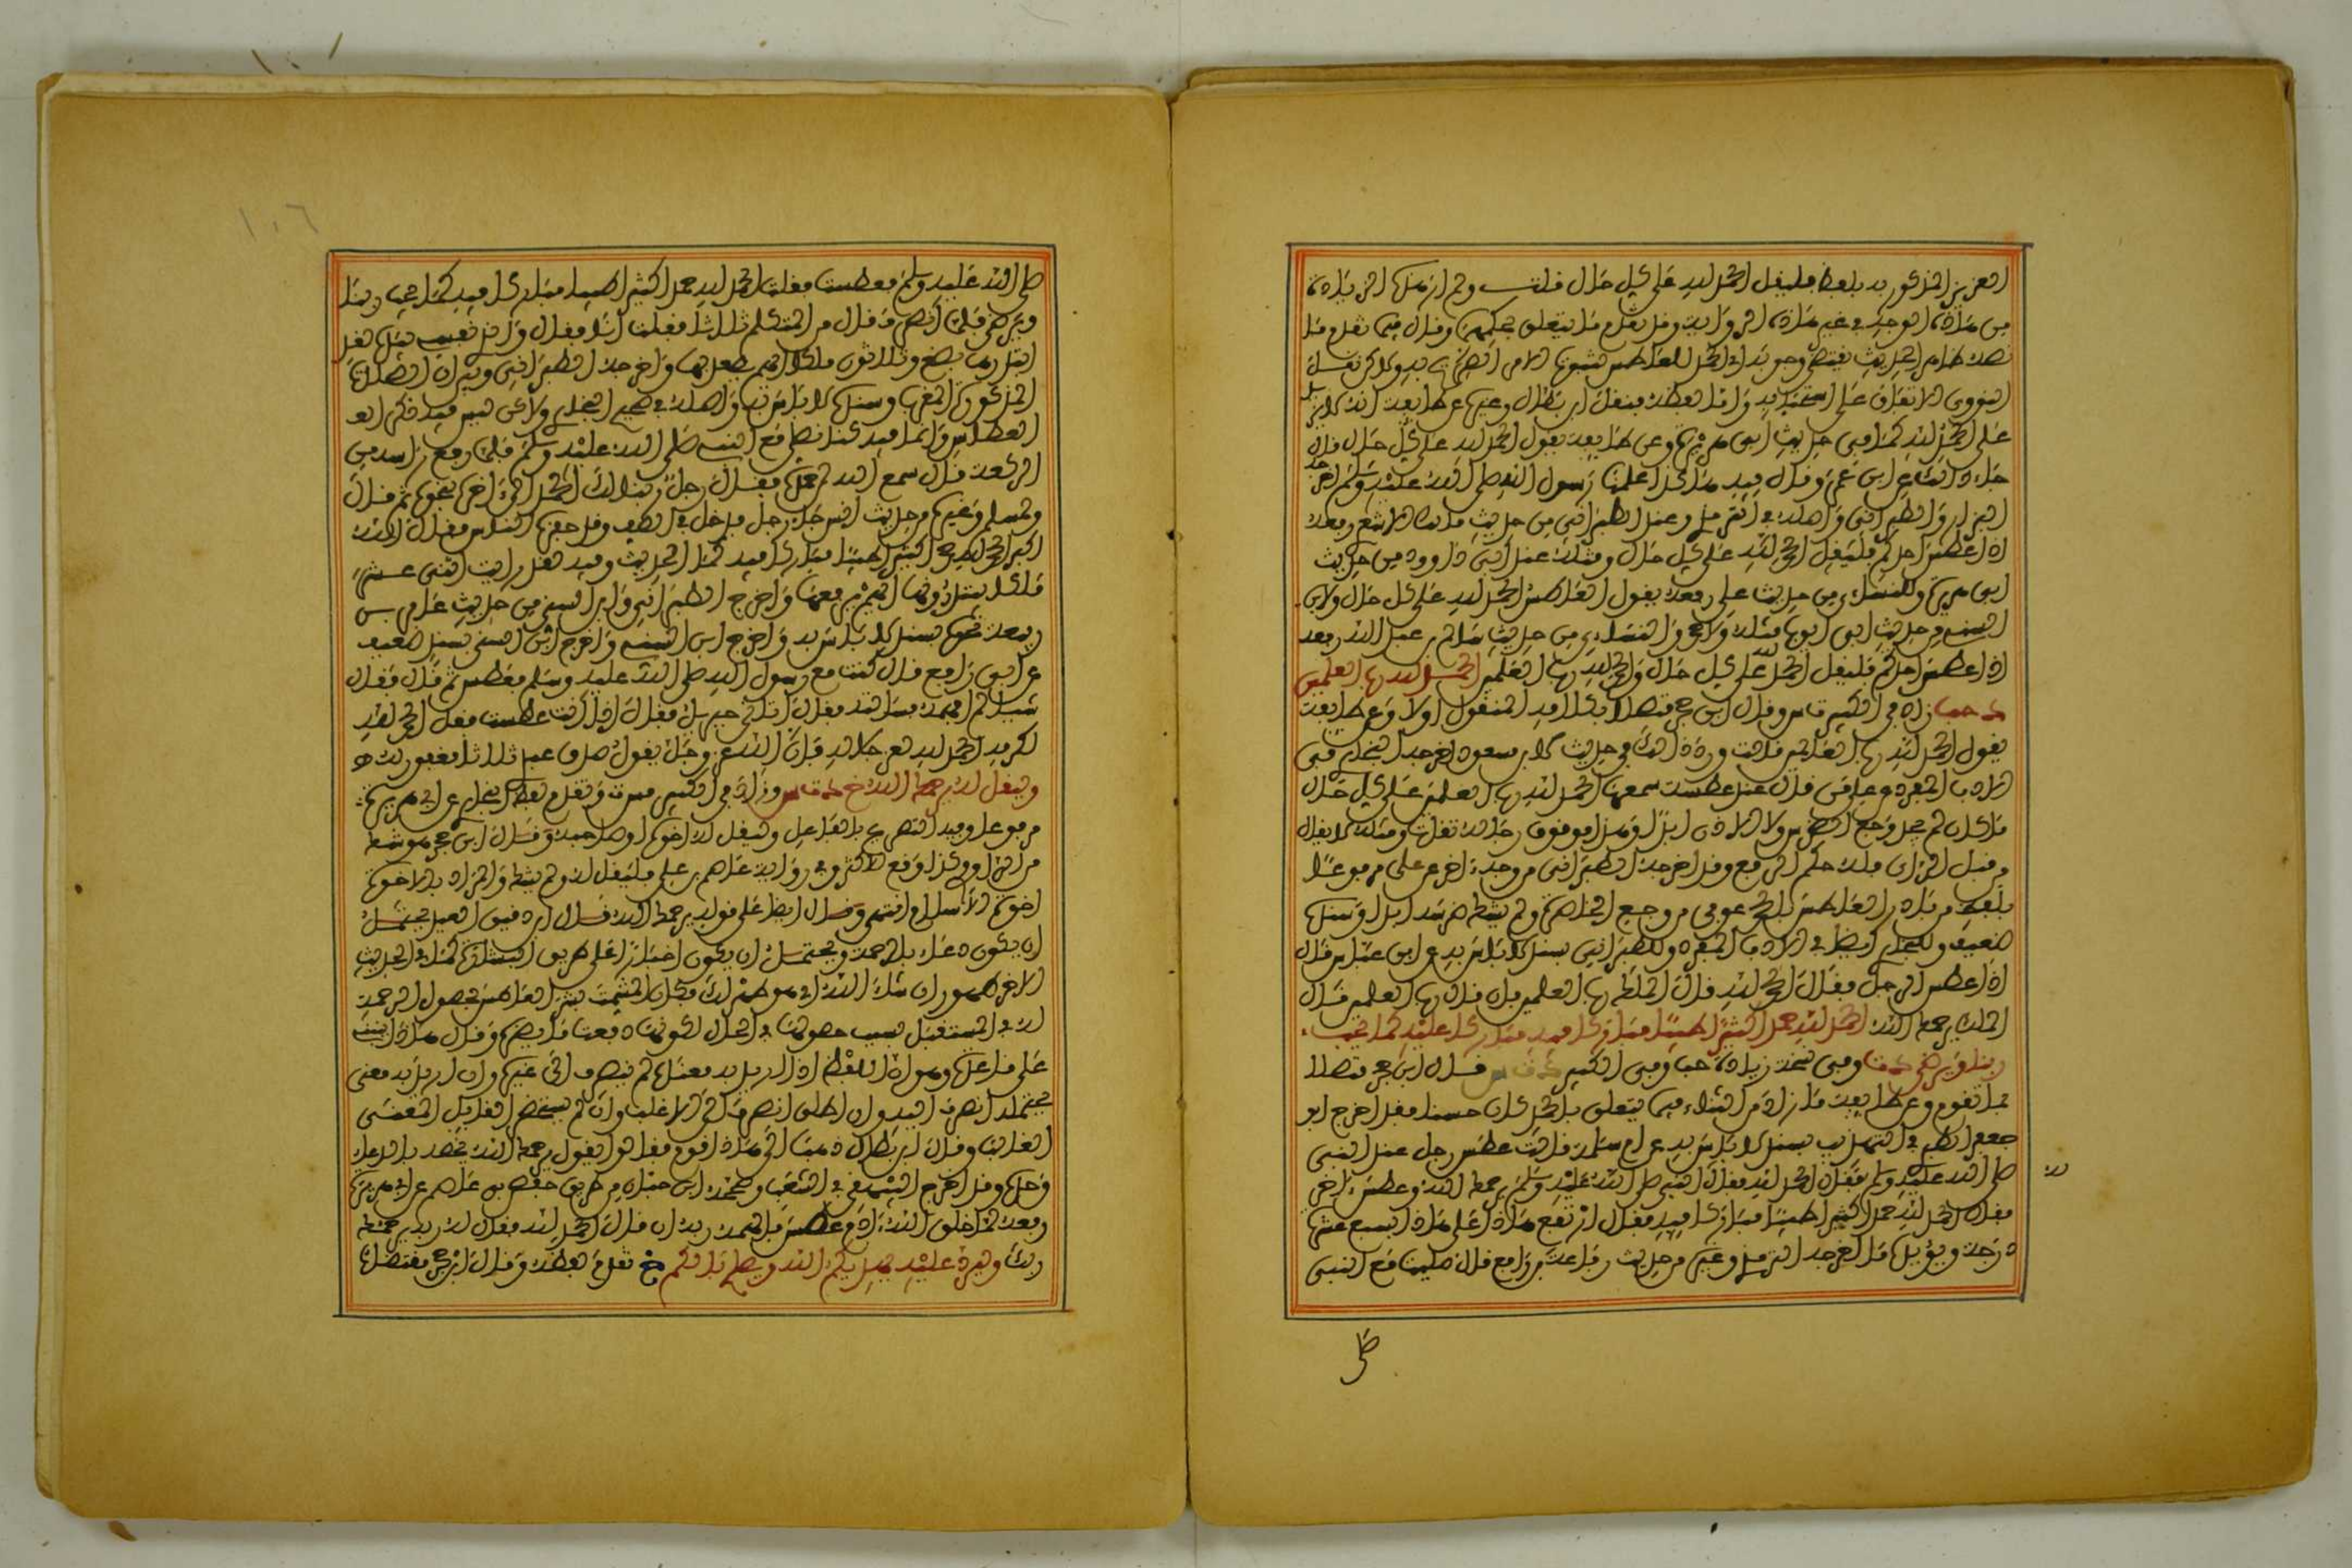 العزيز المذكور به بلفظ فليقل الحمد لله على كل حال قلت ولم ار منها الزيادة
من هذه الوجه في غير هذه الرواية وقد تقدم ما يتعلق بحكمهن وقال فيما تقدم ما
نصه ظاهر الحديث يقتضي وجوبه اي الحمد للعاطس لثبوت الامر الصريح به ولاكن نقل
النووي الاتفاق على استحبابه واما لفظه فنقل ابن بطال وغيره عن طائفة انه لا يزيد
على الحمد لله كما في حديث ابي هريرة وعن طائفة يقول الحمد لله على كل حال قال
جاء ذلك عن ابن عمر وقال فيه هاكذا علمنا رسول الله صلى الله عليه وسلم اخرجه
البزار والطبراني واصله في الترمذي وعند الطبراني من حديث ابي مالك الاشعري رفعه
اذا عطس احدكم فليقل الحمد لله على كل حال ومثله عند ابي داوود من حديث
ابي هريرة وللنساءي من حديث علي رفعه يقول العاطس الحمد لله على كل حال ولابن
السني من حديث ابي ايوب مثله ولاحمد والنساءي من حديث سالم بن عبيد الله رفعه
اذا عطس احدكم فليقل الحمد لله على كل حال والحمد لله رب العلمين الحمد لله رب العلمين
زاد في الكبير وقال ابن حجر متصلا بكلامه المنقول اولا وعن طائفة
يقول الحمد لله رب العلمين قلت ورد ذلك في حديث لابن مسعود اخرجه البخاري في
الادب المفرد وعن علي قال من قال عند عطسة سمعها الحمد لله رب العلمين على كل حال
ما كان لم يجد وجع الضرس ولا الاذن ابدا وهذا موقوف رجاله ثقات ومثله لا يقال
من قبل الراي فله حكم الرفع وقد اخرجه الطبراني من وجه اخر عن علي مرفوعا
بلفظ من بادر العاطس بالحمد عوفي من وجع الخاصرة ولم يشتك ضرسه ابدا وسنده
ضعيف وللبخاري ايضا في الادب المفرد وللطبراني بسند لا باس به عن ابن عباس قال
اذا عطس الرجل فقال الحمد لله قال الملك رب العلمين فان قال رب العلمين قال
الملك يرحمك الله الحمد لله حمدا كثيرا طيبا مباركا فيه مباركا عليه كما يحب
ربنا ويرضى وفي نسخة زيادة وفي الكبير قال ابن حجر متصلا
بما تقدم وعن طائفة ما زاد من الثناء فيما يتعلق بالحمد كان حسنا فقد اخرج ابو
جعفر الطبري في التهذيب بسند لا باس به عن ام سلمة قالت عطس رجل عند النبي
صلى الله عليه وسلم فقال الحمد لله فقال النبي صلى الله عليه وسلم يرحمك الله وعطس اخر
فقال الحمد لله حمدا كثيرا طيبا مباركا فيه فقال ارتفع هذا على هذا تسع عشرة
درجة ويؤيده ما اخرجه الترمذي وغيره من حديث رفاعة بن رافع قال صليت مع النبي
صلى
١٠٦
صلى الله عليه وسلم فعطست فقلت الحمد لله حمدا كثيرا طيبا مباركا فيه كما يحب ربنا
ويرضى فلما انصرف قال من المتكلم ثلاثا فقلت انا فقال والذي نفسي بيده لقد
ابتدرها بضع وثلاثون ملكا ايهم يصعد بها واخرجه الطبراني وبين ان الصلاة
المذكورة المغرب وسنده لا باس به واصله في صحيح البخاري ولاكن ليس فيه ذكر
العطاس وانما فيه كنا نصلي مع النبي صلى الله عليه وسلم فلما رفع راسه من
الركعة قال سمع الله لمن حمده فقال رجل ربنا لك الحمد الى اخره بنحوه ثم قال
ولمسلم وغيره من حديث انس جاء رجل فدخل في الصف وقد حفزه النفس فقال الله
اكبر الحمد لله حمدا كثيرا طيبا مباركا فيه كما الحديث وفيه لقد رايت اثنى عشر
ملكا يبتدرونها ايهم يرفعها واخرج الطبراني وابن السني من حديث عامر بن
ربيعة نحوه بسند لا باس به واخرج ابن السني واخرج ابن السني بسند ضعيف
عن ابي رافع قال كنت مع رسول الله صلى الله عليه وسلم فعطس ثم قال فقال
شيئا لم افهمه فسالته فقال اتاني جبريل فقال اذا انت عطست فقل الحمد لله
لكرمه الحمد لله لعز جلاله فان الله عز وجل يقول صدق عبدي ثلاثا مغفور له
وليقل له يرحمك الله وزاد في الكبير وتقدم لفظ البخاري عن ابي هريرة
مرفوعا وفيه التصريح بالفاعل وليقل له اخوه او صاحبه وقال ابن حجر هو شك
من الراوي وكذا وقع للاكثر وفي رواية عاصم بن علي فليقل له ولم يشك والمراد بالاخوة
اخوة الاسلام انتهى وقال ايضا على قوله يرحمك الله قال ابن دقيق العيد يحتمل
ان يكون دعاء بالرحمة ويحتمل ان يكون اخبارا على طريق البشارة كما في الحديث
الاخر طهور ان شاء الله اي هو طهر لك فكان المشمت بشر العاطس بحصول الرحمة
له في المستقبل بسبب حصولها في الحال لكونها دفعت ما يضره وقال هذا ينبني
على قاعدة وهي ان اللفظ اذا اريد به معناه لم ينصرف الى غيره وان اريد به معنى
يحتمله انصرف اليه وان اطلق انصرف الى الاغلب وان لم يستحضر القايل المعنى
الغالب وقال ابن بطال ذهب الى هذا قوم فقالوا يقول يرحمك الله يخصه بالدعاء
وحده وقد اخرج البيهقي في الشعب وصححه ابن حبان من طريق حفص بن عاصم عن ابي هريرة
رفعه لما خلق الله ادم عطس فالهمه ربه ان قال الحمد لله فقال له ربه يرحمك
ربك وليرد عليه يهديكم الله ويصلح بالكم خ تقدم لفظه وقال ابن حجر مقتضاه